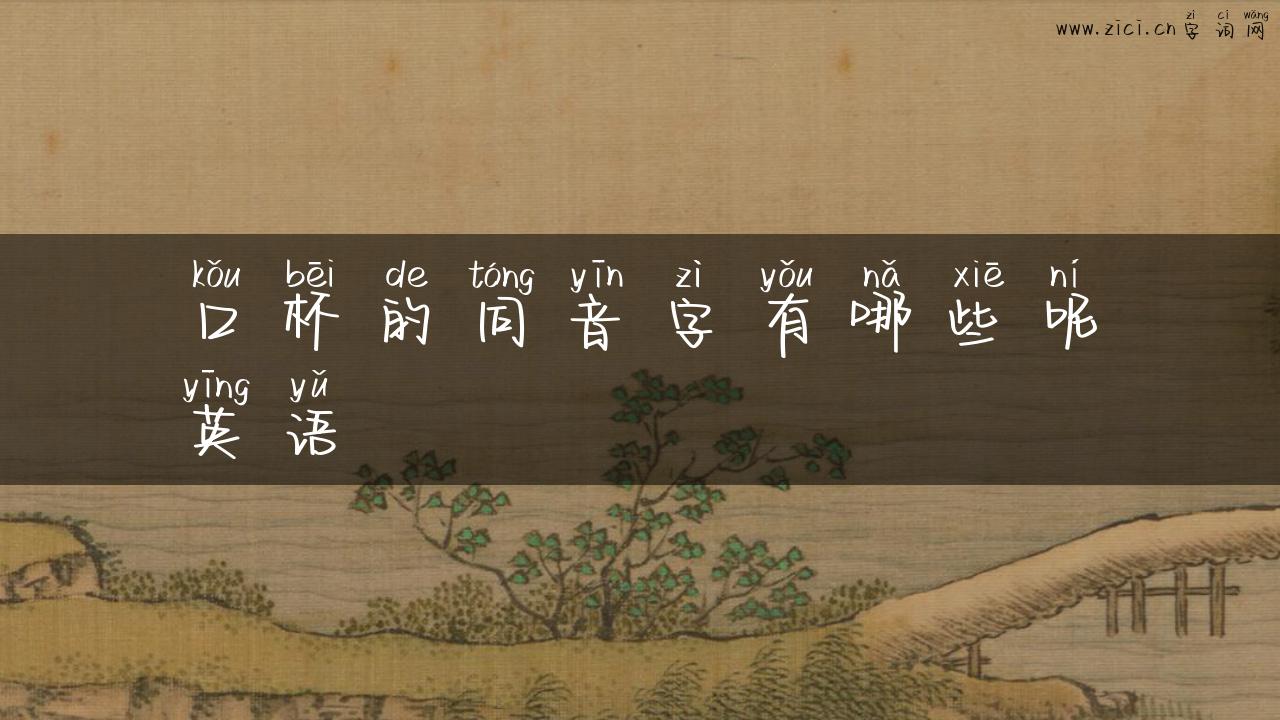 zì cí wǎng
www.zici.cn 字 词 网
kǒu bēi de tóng yīn zì yǒu nǎ xiē ní
口 杯 的 同 音 字 有 哪 些 呢
yīng yǔ
英 语